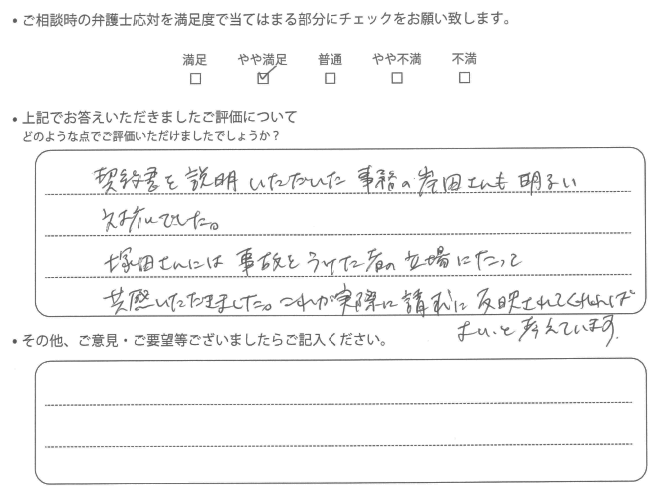 ・ご相談時の弁護士応対を満足度で当てはまる部分にチェックをお願い致します。
満足 やや満足 普通 やや不満 不満
□ ☑ □ □ □
・上記でお答えいただきましたご評価について
どのような点でご評価いただけましたでしょうか？
契約書を説明いただいた事務の岸田さんも明るい
対応でした。
塚田さんには事故をうけた者の立場にたって
共感いただきました。これが実際に請求に反映されてくれれば
よいと考えています。
・その他、ご意見・ご要望等ございましたらご記入ください。